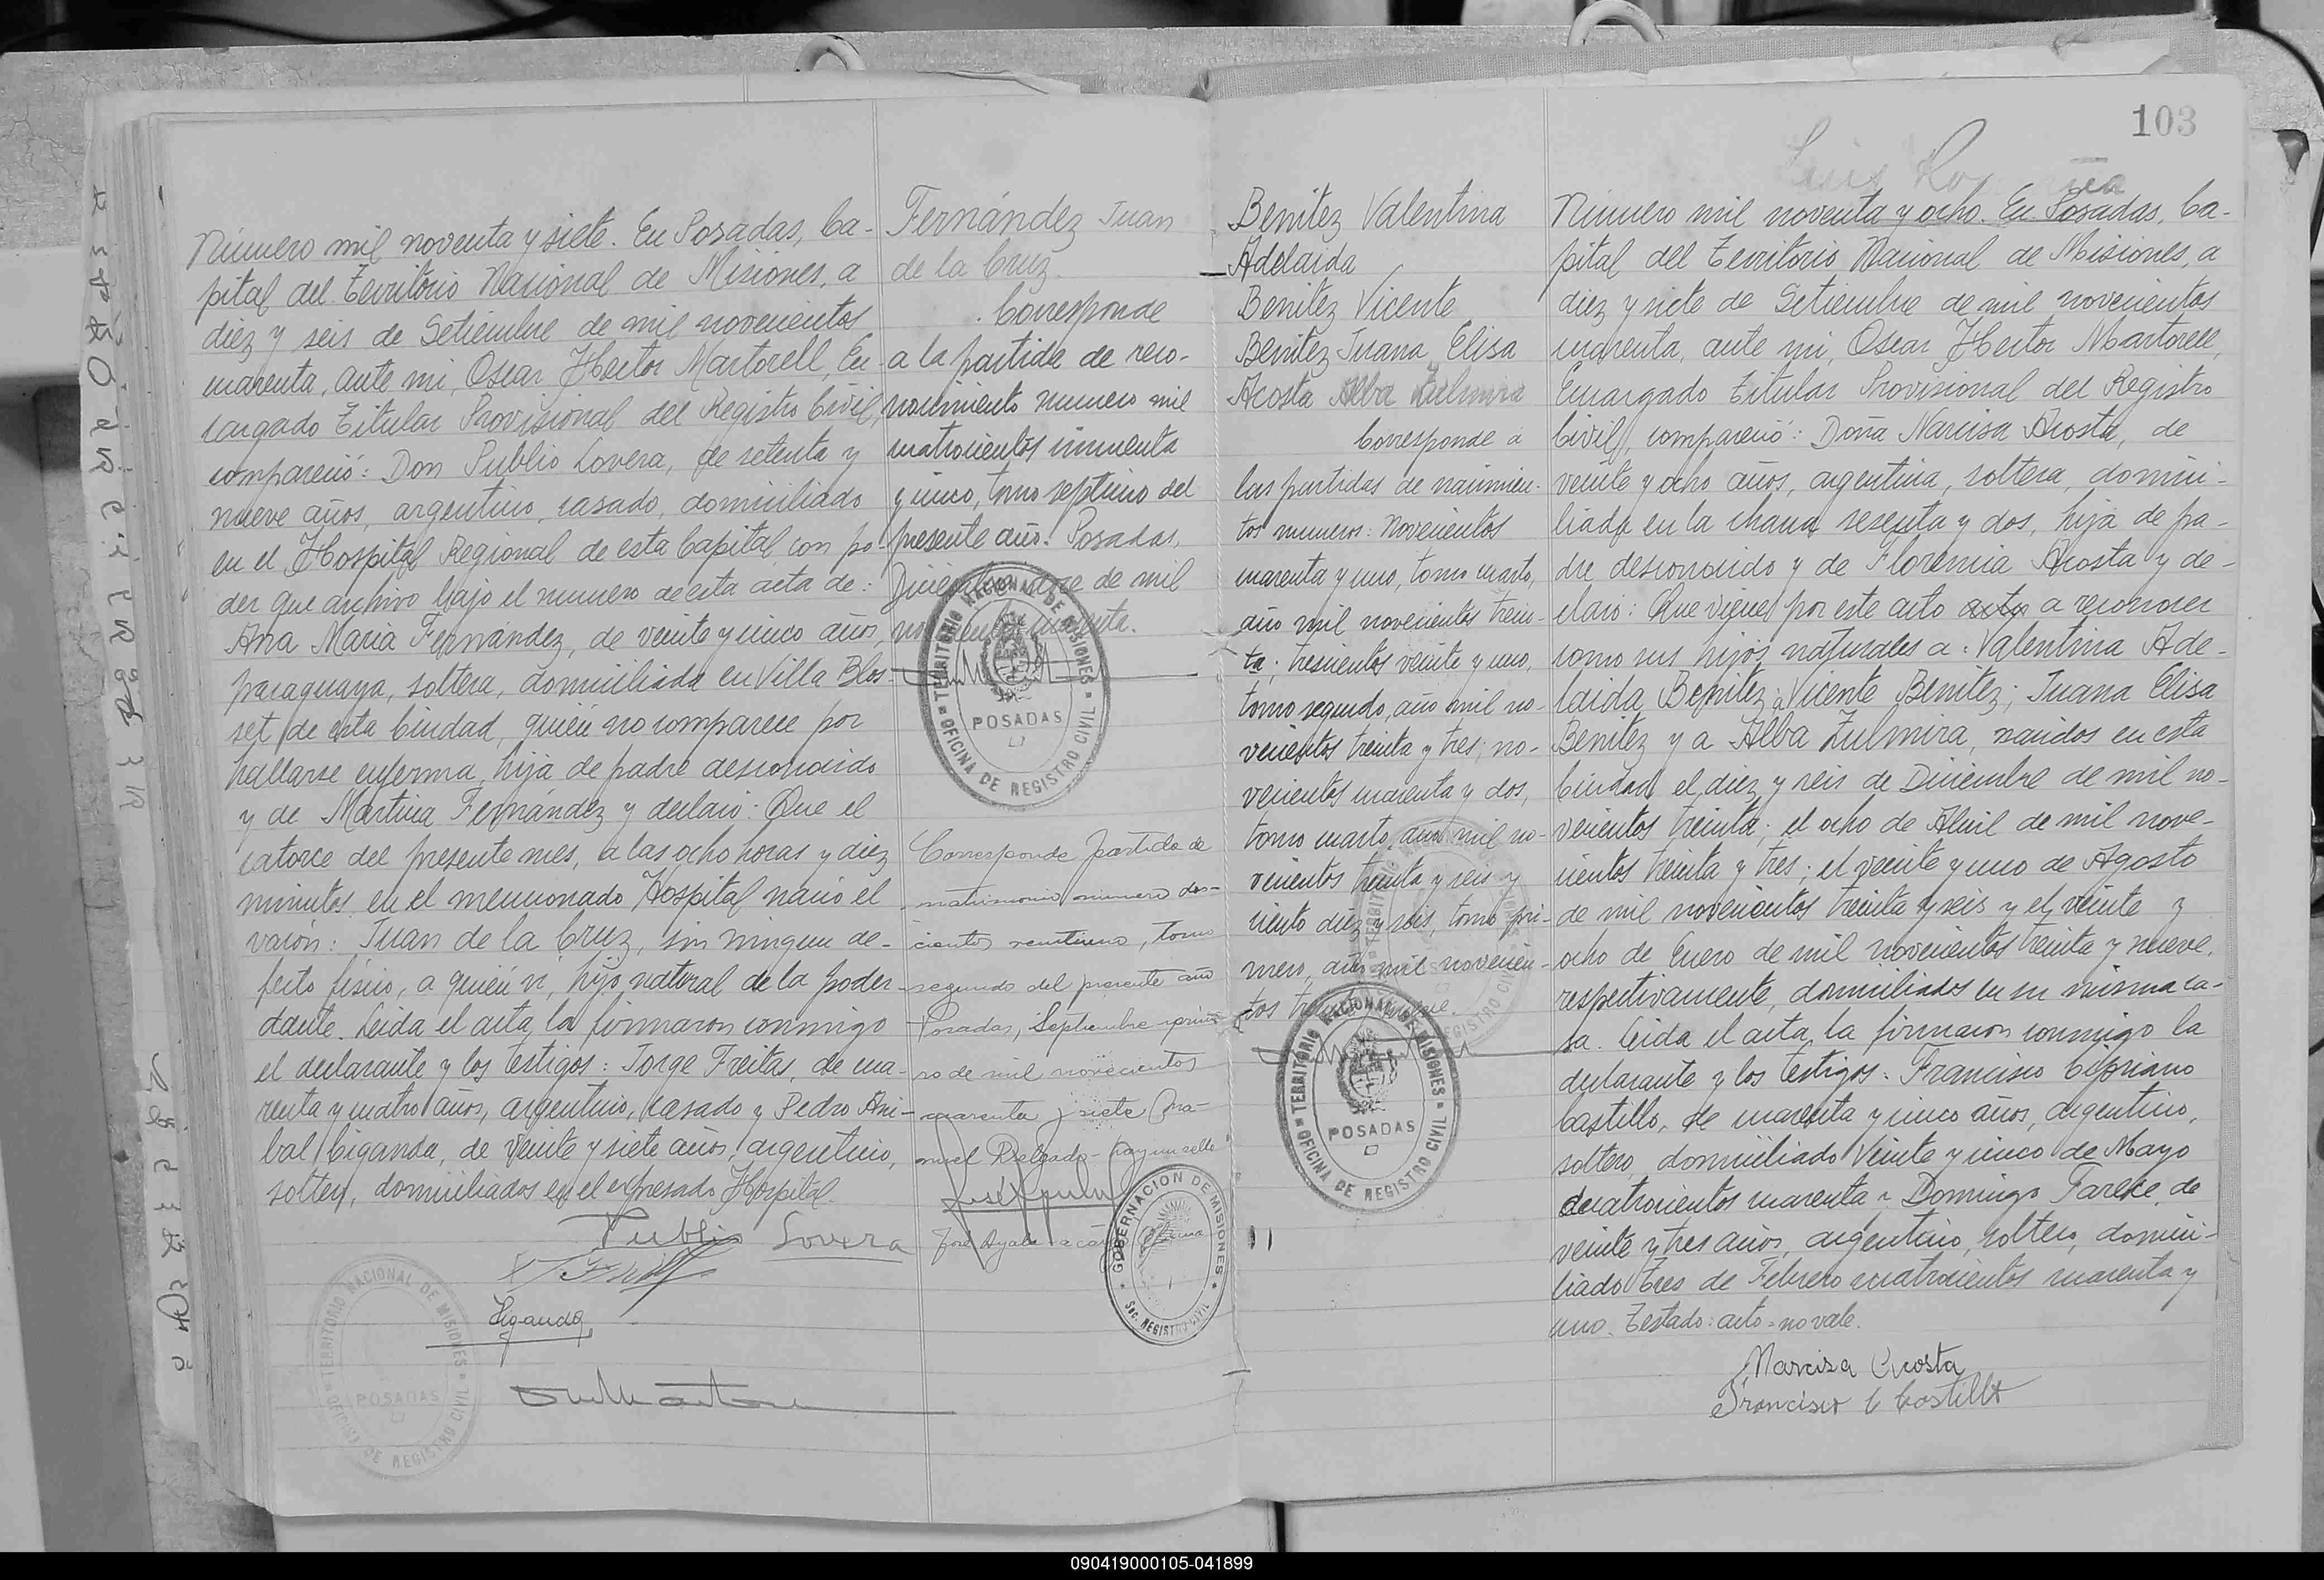 Número mil noventa y siete. En Posadas, Ca-
pital del Territorio Nacional de Misiones, a
diez y seis de Setiembre de mil novecientos
cuarenta, ante mi, Oscar Hector Martorell, En-
cargado Titular Provisional del Registro Civil,
compareció: Don Publio Lovera, de setenta y
nueve años, argentino, casado, domiciliado
en el Hospital Regional de esta Capital con po-
der que archivo bajo el numero de esta acta de:
Ana Maria Fernández, de veinte y cinco años,
paraguaya, soltera, domiciliada en Villa Blos-
set de esta Ciudad, quién no comparece por
hallarse enferma, hija de padre desconocido
y de Martina Fernández y declaró: Que el
catorce del presente mes, a las ocho horas y diez
minutos en el mencionado Hospital nació el
varón: Juan de la Cruz, sin ningun de-
fecto físico, a quién vi, hijo natural de la poder-
dante. Leida el acta, la firmaron conmigo
el declarante y los testigos: Jorge Freitas, de cua-
renta y cuatro años, argentino, casado y Pedro Ani-
bal Ciganda, de veinte y siete años, argentino,
soltero, domiciliados en el expresado Hospital.
Publio Lovera
Fernández Juan
de la Cruz.
Corresponde
a la partida de reco-
nocimiento numero mil
cuatrocientos cincuenta
y cinco, tomo septimo del
presente año. Posadas,
Diciembre de mil
novecientos cuarenta.
TERRITORIO NACIONAL DE MISIONES
POSADAS
OFICINA DE REGISTRO CIVIL
Corresponde partida de
matrimonio número dos-
cientos veintiuno, tomo
segundo del presente año
Posadas, Septiembre
ro de mil novecientos
cuarenta y siete
nuel Delgado - hay un sello
José Ayala
GOBERNACION DE MISIONES
SEC. REGISTRO CIVIL
TERRITORIO NACIONAL DE MISIONES
POSADAS
OFICINA DE REGISTRO CIVIL
103
Benitez Valentina
Adelaida
Benitez Vicente
Benitez Juana Elisa
Acosta Alba Zulmira
Corresponde a
las partidas de nacimien-
tos numeros: Novecientos
cuarenta y uno, tomo cuarto,
año mil novecientos trein-
ta; trescientos veinte y uno,
tomo segundo, año mil no-
vecientos treinta y tres; no-
vecientos cuarenta y dos,
tomo cuarto, año mil no-
vecientos treinta y seis y
ciento diez y seis, tomo pri-
mero, año mil novecien-
tos treinta y nueve.
TERRITORIO NACIONAL DE MISIONES
POSADAS
OFICINA DE REGISTRO CIVIL
Número mil noventa y ocho. En Posadas, Ca-
pital del Territorio Nacional de Misiones, a
diez y siete de Setiembre de mil novecientos
cuarenta, ante mi, Oscar Hector Martorell,
Encargado Titular Provisional del Registro
Civil, compareció: Doña Narcisa Acosta, de
veinte y ocho años, argentina, soltera, domici-
liada en la chacra sesenta y dos, hija de pa-
dre desconocido y de Florencia Acosta y de-
claró: Que viene por este acto acto a reconocer
como sus hijos naturales a: Valentina Ade-
laida Benitez; Vicente Benitez; Juana Elisa
Benitez y a Alba Zulmira, nacidos en esta
Ciudad el diez y seis de Diciembre de mil no-
vecientos treinta; el ocho de Abril de mil nove-
cientos treinta y tres; el veinte y uno de Agosto
de mil novecientos treinta y seis y el veinte y
ocho de Enero de mil novecientos treinta y nueve,
respectivamente, domiciliados en su misma ca-
sa. Leida el acta, la firmaron conmigo la
declarante y los testigos: Francisco Cipriano
Castillo, de cuarenta y cinco años, argentino,
soltero, domiciliado Veinte y cinco de Mayo
cuatrocientos cuarenta y Domingo de
veinte y tres años, argentino, soltero, domici-
liado Tres de Febrero cuatrocientos cuarenta y
uno. Testado: acto - no vale.
Narcisa Acosta
Francisco C Castillo
090419000105-041899